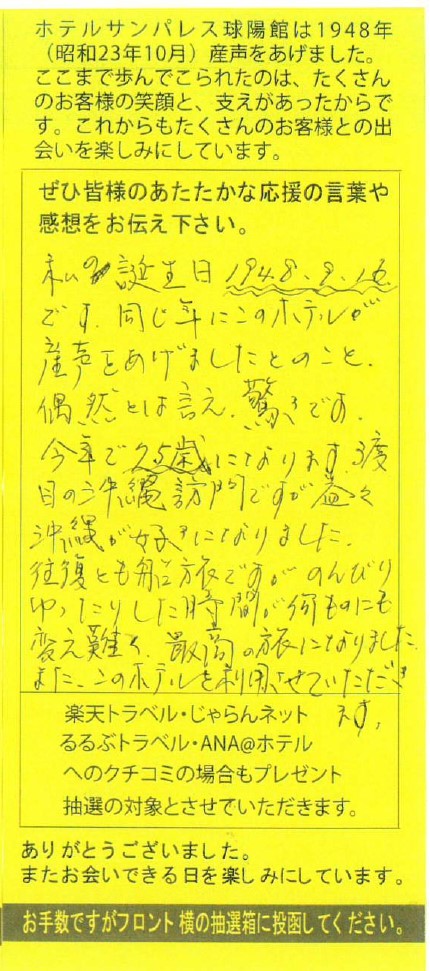 ホテルサンパレス球陽館は1948年
（昭和23年10月）産声をあげました。
ここまで歩んでこられたのは、たくさん
のお客様の笑顔と、支えがあったからで
す。これからもたくさんのお客様との出
会いを楽しみにしています。
ぜひ皆様のあたたかな応援の言葉や
感想をお伝え下さい。
私の誕生日1948.9.16
です.同じ年にこのホテルが
産声をあげましたとのこと.
偶然とは言え.驚きです.
今年で75歳になります.3度
目の沖縄訪問ですが益々
沖縄が好きになりました.
往復とも船旅ですがのんびり
ゆったりした時間が何ものにも
変え難く、最高の旅になりました.
また、このホテルを利用させていただき
ます。
楽天トラベル・じゃらんネット
るるぶトラベル・ANA@ホテル
へのクチコミの場合もプレゼント
抽選の対象とさせていただきます。
ありがとうございました。
またお会いできる日を楽しみにしています。
お手数ですがフロント横の抽選箱に投函してください。